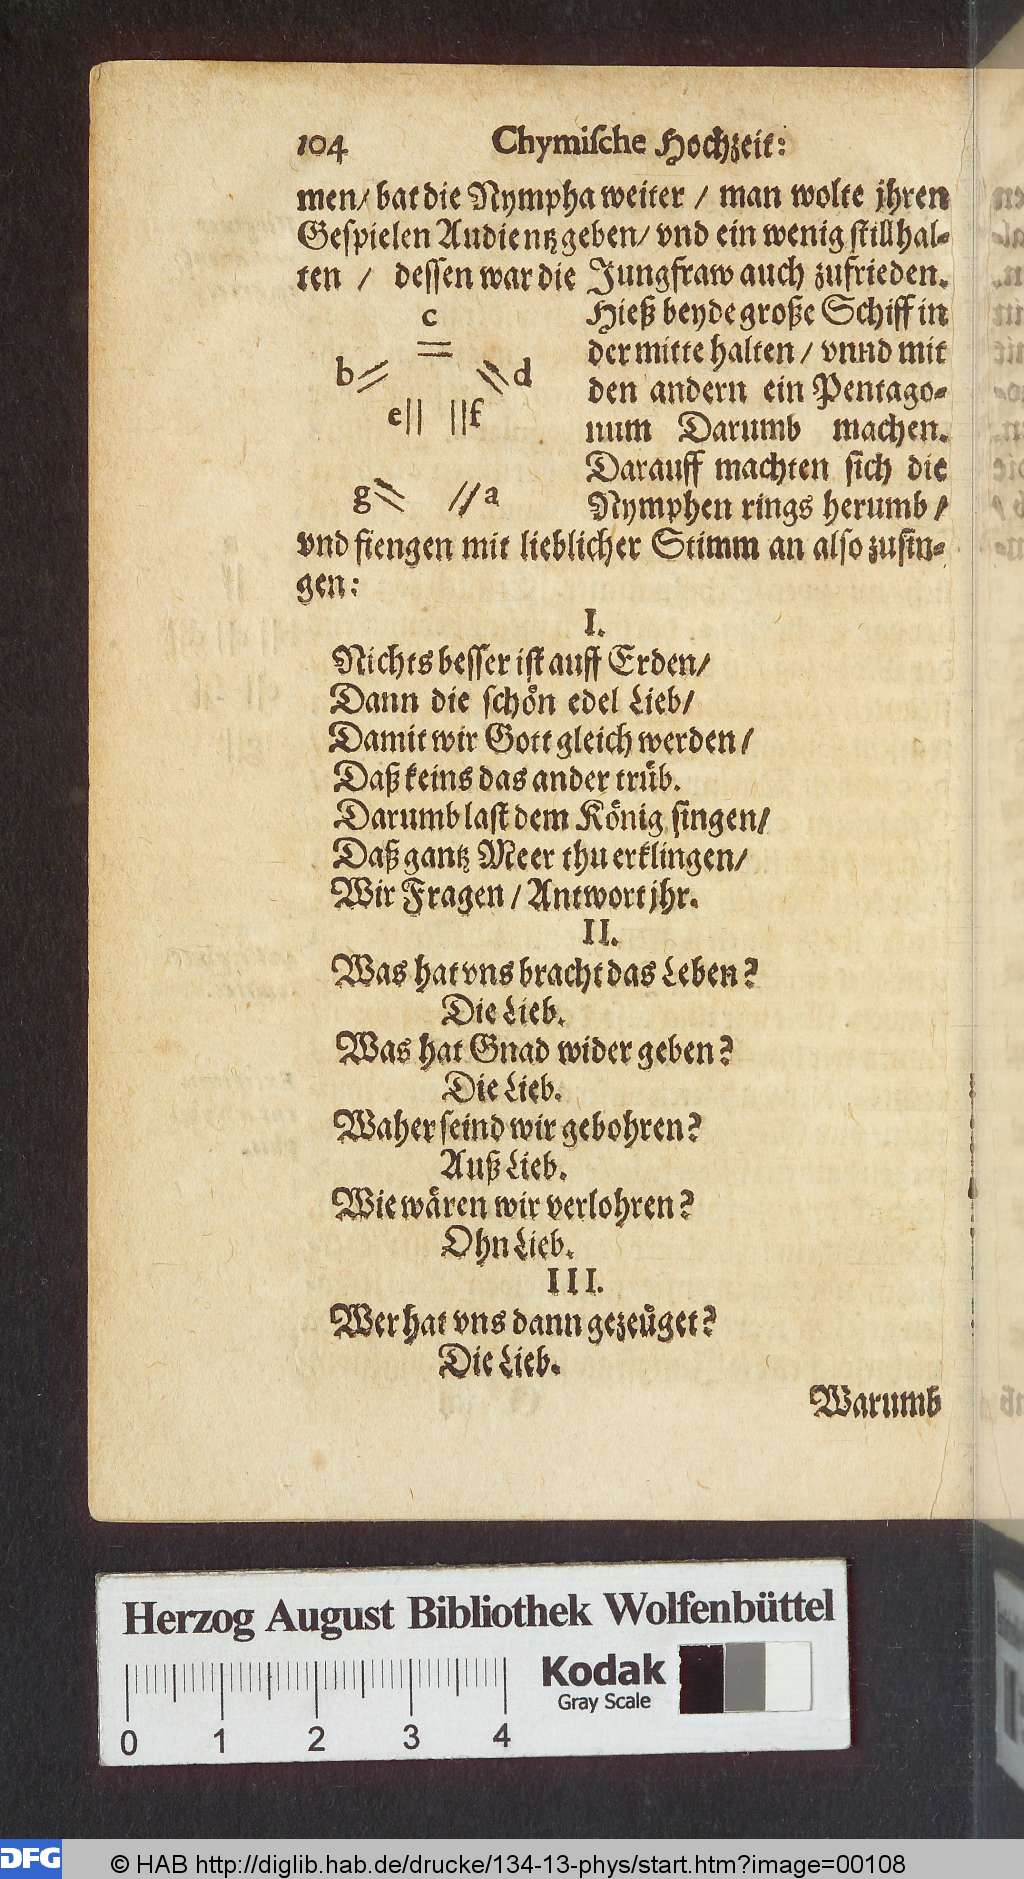 104 Chymische Hochzeit:
men/ bat die Nympha weiter / man wolte jhren
Gespielen Audientz geben/ vnd ein wenig still hal-
ten / dessen war die Jungfraw auch zufrieden.
Hieß beyde große Schiff in
der mitte halten / vnnd mit
den andern ein Pentago-
num Darumb machen.
Darauff machten sich die
Nymphen rings herumb /
c
b d
e f
g a
vnd fiengen mit lieblicher Stimm an also zusin-
gen:
I.
Nichts besser ist auff Erden/
Dann die schön edel Lieb/
Damit wir Gott gleich werden /
Daß keins das ander trüb.
Darumb last dem König singen/
Daß gantz Meer thu erklingen/
Wir Fragen / Antwort jhr.
II.
Was hat vns bracht das Leben?
Die Lieb.
Was hat Gnad wider geben?
Die Lieb.
Waher seind wir gebohren?
Auß Lieb.
Wie wären wir verlohren?
Ohn Lieb.
III.
Wer hat vns dann gezeüget?
Die Lieb.
Warumb
Herzog August Bibliothek Wolfenbüttel
Kodak
Gray Scale
0 1 2 3 4
DFG © HAB http://diglib.hab.de/drucke/134-13-phys/start.htm?image=00108